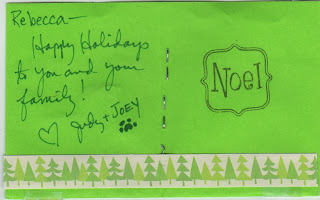 Rebecca—
Happy Holidays
to you and your
family!
♡ Judy + JOEY
Noel